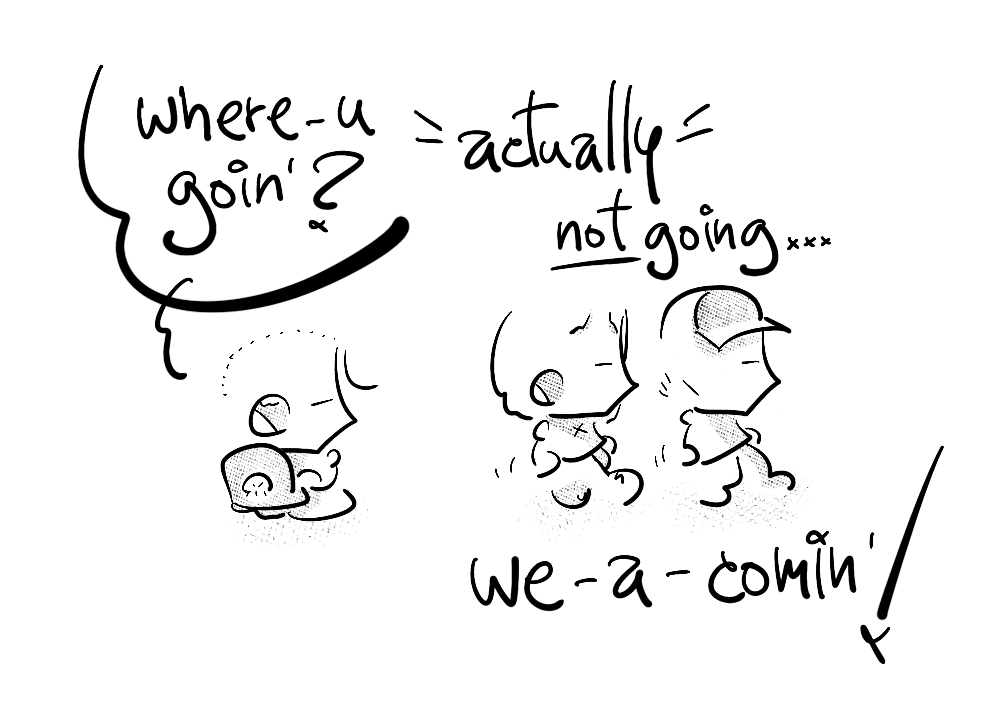 where-u
goin'?
actually
not going...
we-a-comin'!